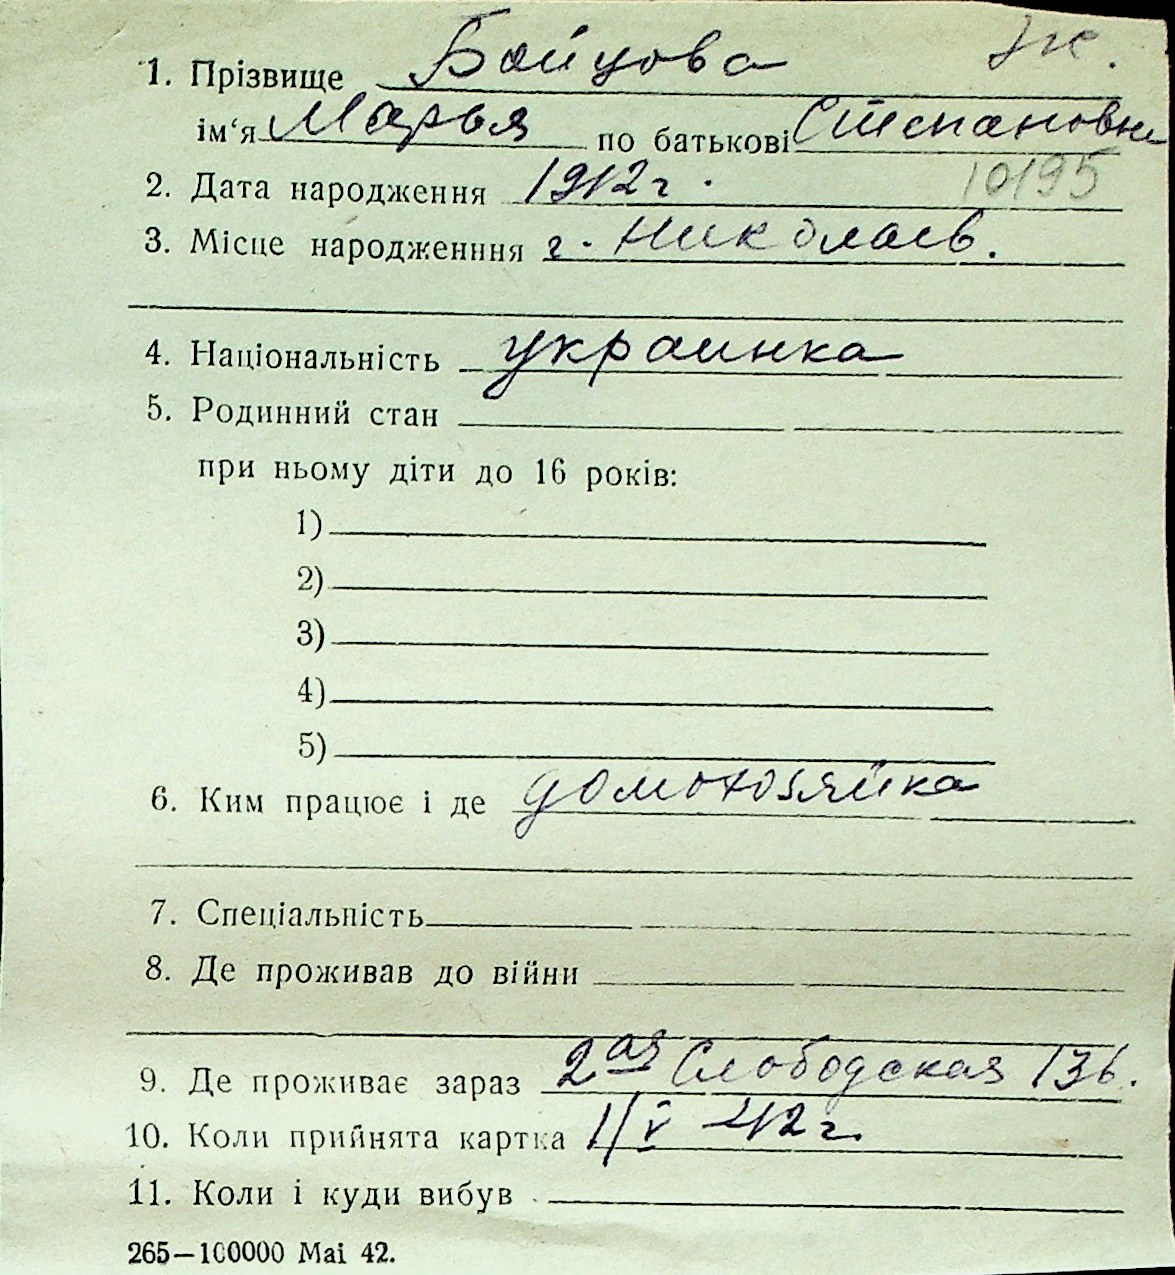 1. Прізвище Бойцова ж.
ім‘я Марья по батькові Степановна
2. Дата народження 1912 г. 10195
3. Місце народженння г. Николаев.
4. Національність украинка
5. Родинний стан
при ньому діти до 16 років:
1)
2)
3)
4)
5)
6. Ким працює і де домохозяйка
7. Спеціальність
8. Де проживав до війни
9. Де проживає зараз 2ая Слободская 136.
10. Коли прийнята картка 1/V 42 г.
11. Коли і куди вибув
265—100000 Mai 42.